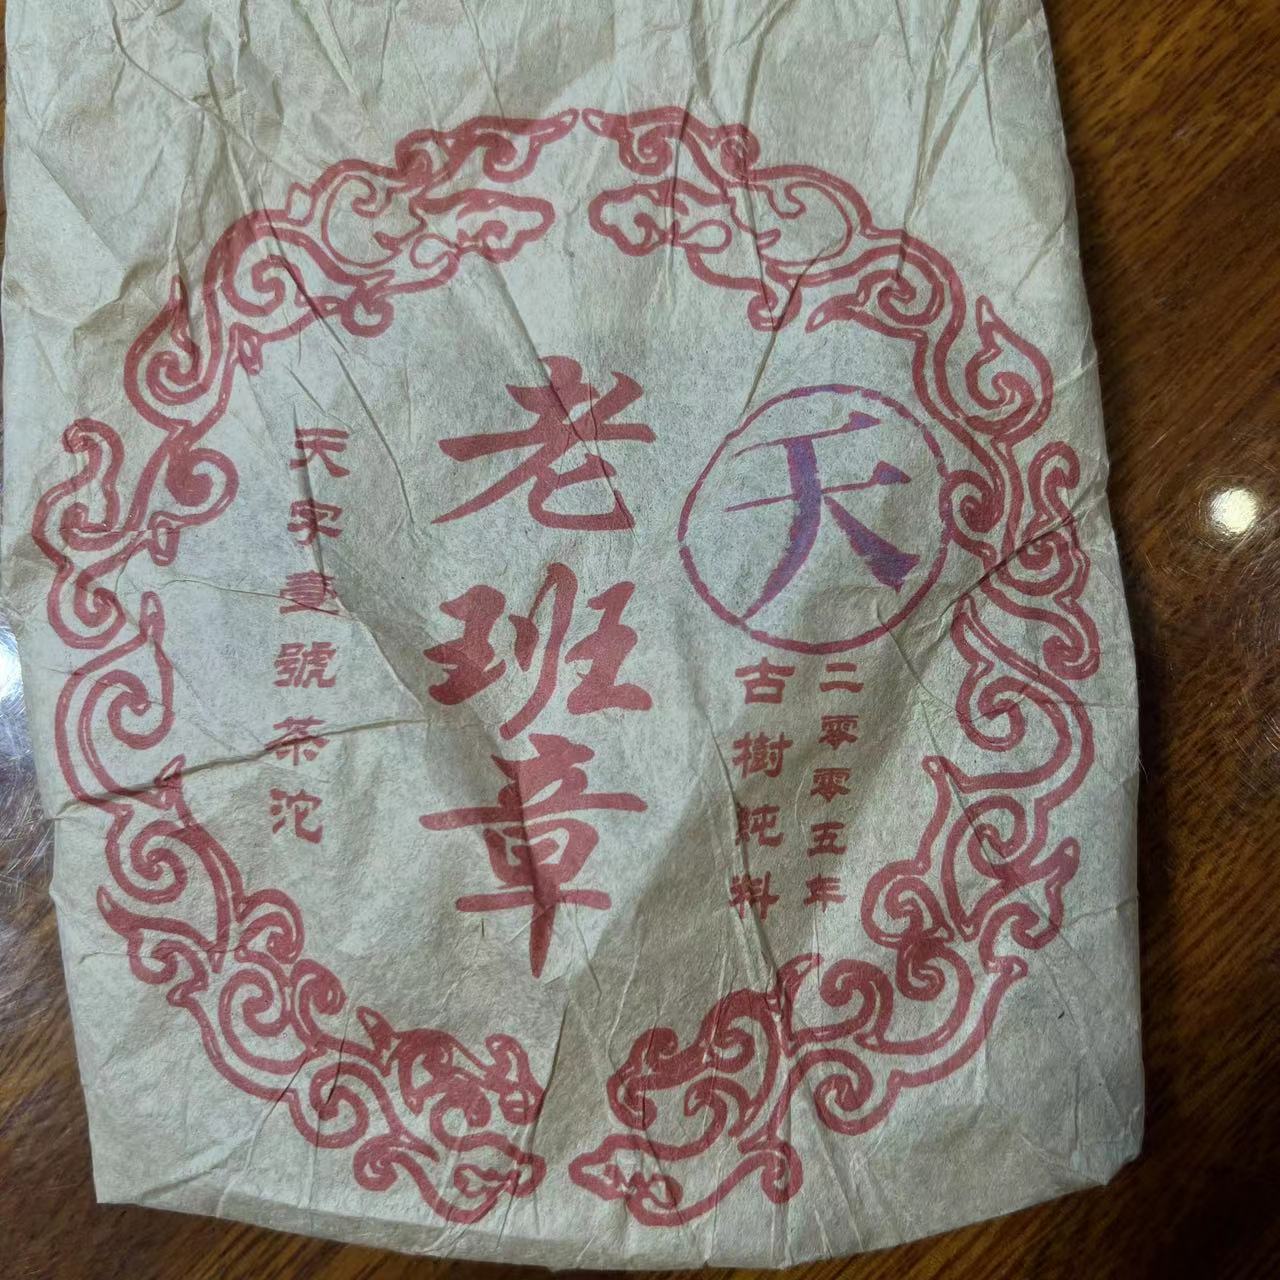 天
二零零五年
古樹純料
老班章
天字壹號茶沱